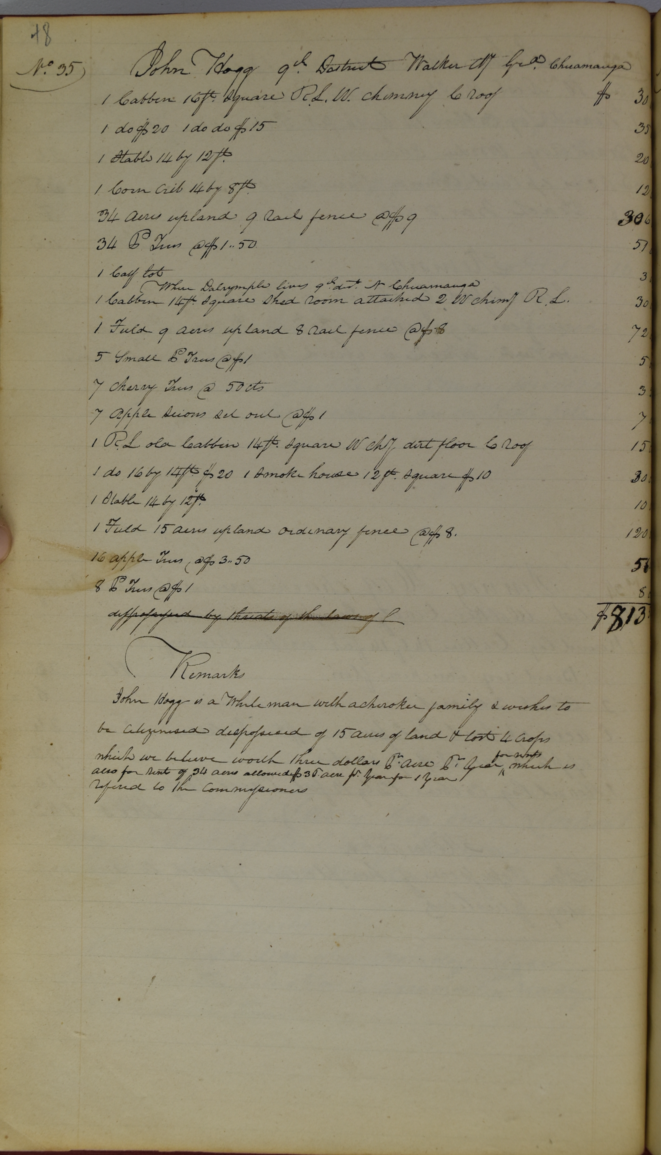 48
No 35) John Hogg 9th District Walker Cty Ga Chicamauga
1 Cabbin 16ft Square R.L. W. Chimney C roof $ 30
1 do $20 1 do do $15 35
1 Stable 14 by 12ft 20
1 Corn Crib 14 by 8ft 12
34 Acres upland 9 rail fence @$9 306
34 P Trees @$1-50 51
1 Calf lot 3
Where Dalrymple lives 9th dist N Chicamauga
1 Cabbin 14ft Square Shed room attached 2 W Chimy R.L. 30
1 Field 9 acres upland 8 rail fence @$8 72
5 Small P Trees @$1 5
7 Cherry Trees @ 50cts 3
7 Apple Scions set out @$1 7
1 R.L old Cabbin 14ft Square W Chy dirt floor C roof 15
1 do 16 by 14ft $20 1 Smoke house 12ft Square $10 30
1 Stable 14 by 12ft 10
1 Field 15 acres upland ordinary fence @$8. 120
16 apple Trees @$3-50 56
8 P Trees @$1 8
dispossessed by threats of the laws of $813
Remarks
John Hogg is a White man with a cherokee family & wishes to
be Citizenised dispossessed of 15 acres of land & lost 4 Crops
which we believe worth three dollars Pr Acre Pr Year for rents which is
also for rent of 34 acres allowed $3 pr acre pr Year for 1 Year
refered to the Commissioners